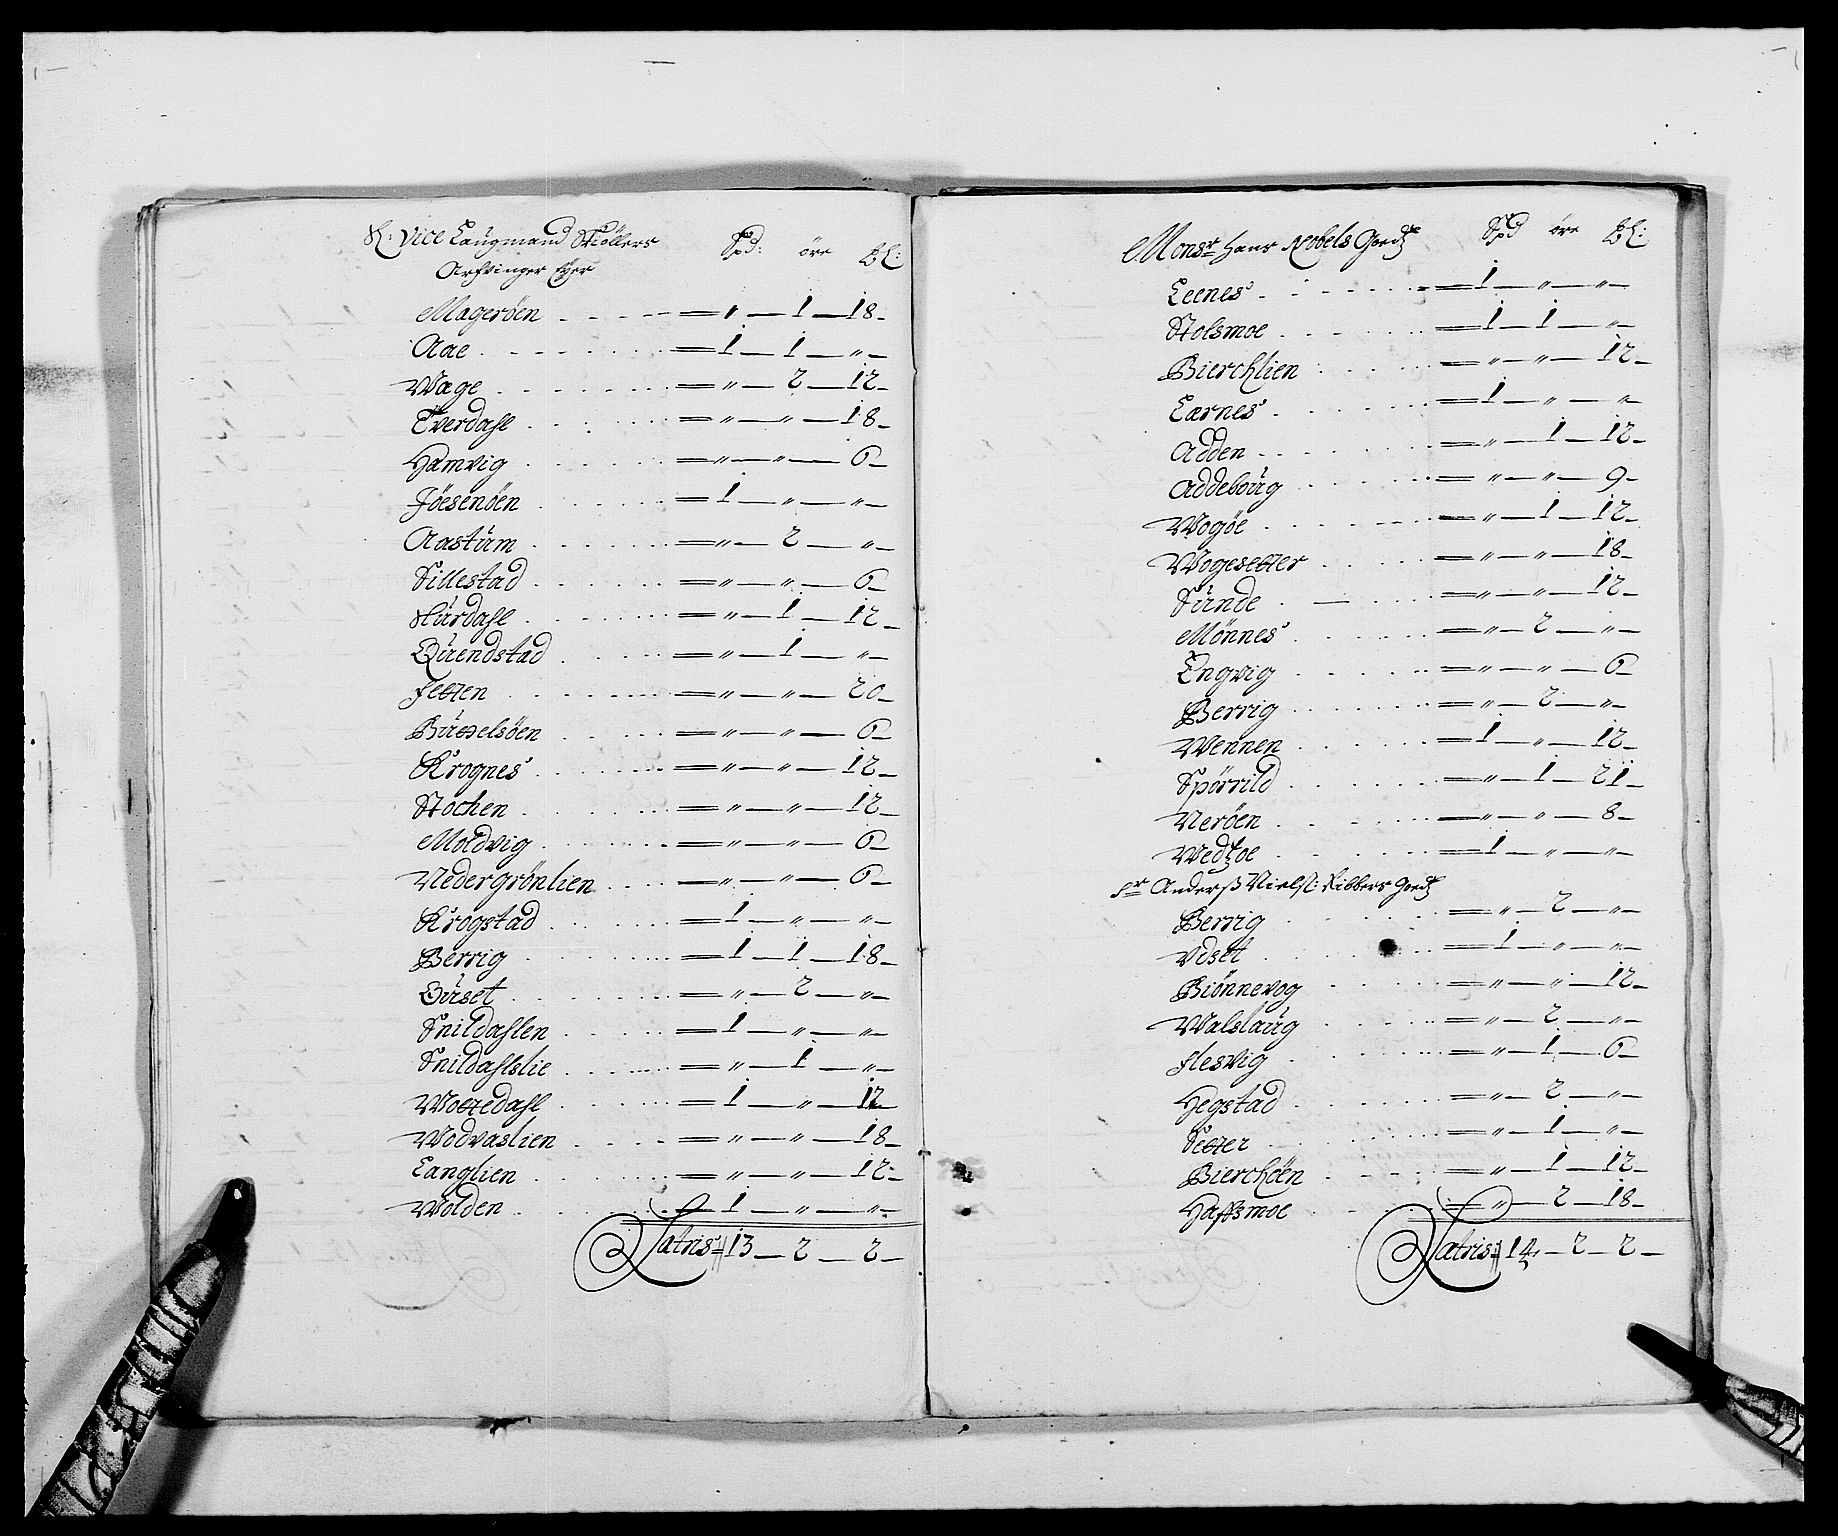 Sl: Vice Laugmand Möllers Spd: öre Ml:
Arfvinger Eyer
Mageröen = " — 1 — 18 —
Aae = 1 — 1 — " —
Wage = " — 2 — 12 —
Tverdahl = " — " — 18 —
Hamvig = " — " — 6 —
Jöesenöen = 1 — " — " —
Aastum = " — 2 — " —
Sillestad = " — " — 6 —
Sturdahl = " — 1 — 12 —
Qvendstad = " — 1 — " —
Fetten = " — " — 20 —
Busselsöen = " — " — 6 —
Krognes = " — " — 12 —
Stochen = " — " — 12 —
Moldvig = " — " — 6 —
Nedergrönlien = " — " — 6 —
Krogstad = 1 — " — " —
Berrig = 1 — 1 — 18 —
Buset = " — 2 — " —
Snildahlen = 1 — " — " —
Snildahlslie = " — 1 — " —
Wottedahl = 1 — " — 12
Wodvaslien = " — " — 18 —
Langlien = " — " — 12 —
Wolden = 1 — " — "
Latris 13 — 2 — 2 —
Monsr Hans Nobels Goedtz Spd öre Ml:
Leenes = 1 — " — " —
Stolsmoe = 1 — 1 — " —
Bierchlien = " — " — 12 —
Larnes = 1 — " — "
Adden = " — 1 — 12 —
Addeboug = " — " — 9 —
Wogöe = " — 1 — 12 —
Wogesetter = " — " — 18 —
Sunde = " — " — 12 —
Mönnes = " — 2 — " —
Engvig = " — " — 6 —
Berrig = " — 2 — " —
Wennen = 1 — " — 12 —
Spörrild = " — 1 — 21 —
Neröen = " — " — 8 —
Wedtzoe = 1 — " — " —
Sr Anderss Nielss: Ribbers Goedtz
Berrig = " — 2 — " —
Udset = 1 — " — " —
Biönnevog = " — " — 12 —
Walslaug = " — 2 — " —
Flesvig = " — 1 — 6 —
Hegstad = " — 2 — " —
Setter = " — 1 — " —
Bierchöen = " — 1 — 12 —
Haffsmoe = " — 2 — 18 —
Latris 14 — 2 — 2 —